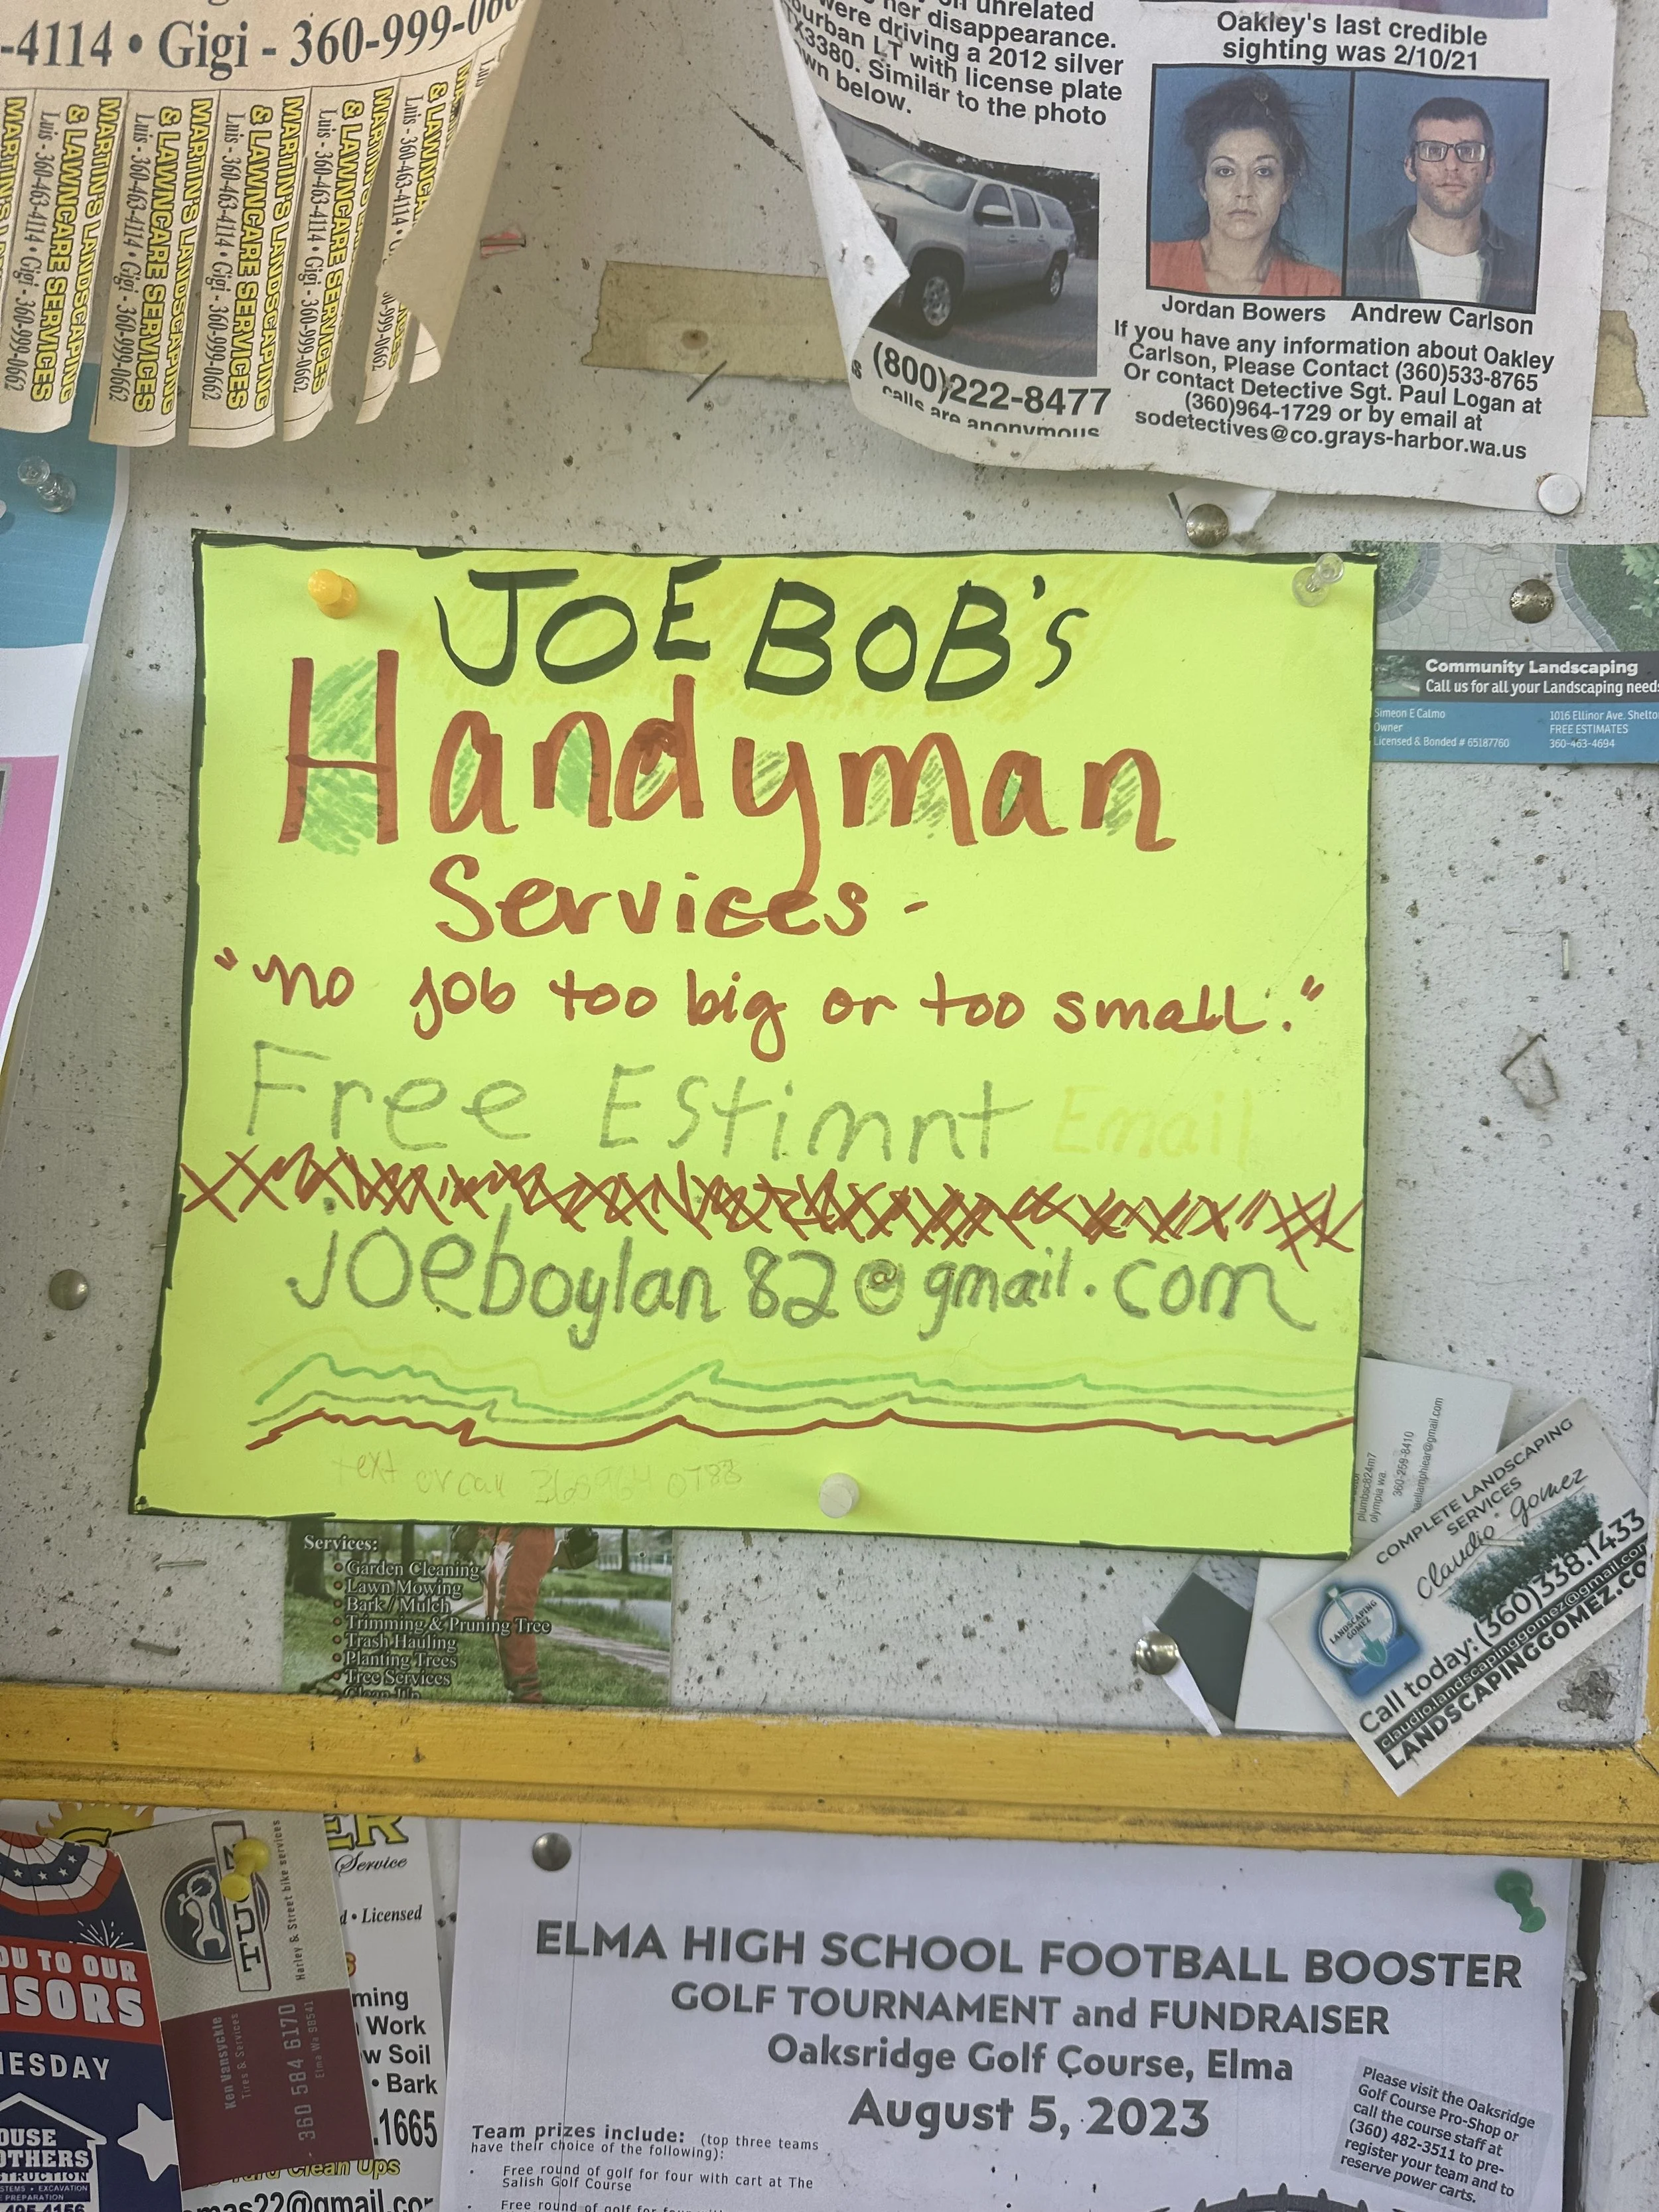 -4114 • Gigi - 360-999-0
MARTIN'S LANDSCAPING
& LAWNCARE SERVICES
Luis - 360-463-4114 • Gigi - 360-999-0662
MARTIN'S LANDSCAPING
& LAWNCARE SERVICES
Luis - 360-463-4114 • Gigi - 360-999-0662
MARTIN'S LANDSCAPING
& LAWNCARE SERVICES
Luis - 360-463-4114 • Gigi - 360-999-0662
MARTIN'S LANDSCAPING
& LAWNCARE SERVICES
Luis - 360-463-4114 • Gigi - 360-999-0662
unrelated
her disappearance.
were driving a 2012 silver
urban LT with license plate
X3380. Similar to the photo
wn below.
(800)222-8477
calls are anonymous
Oakley's last credible
sighting was 2/10/21
Jordan Bowers Andrew Carlson
If you have any information about Oakley
Carlson, Please Contact (360)533-8765
Or contact Detective Sgt. Paul Logan at
(360)964-1729 or by email at
sodetectives@co.grays-harbor.wa.us
JOE BOB's
Handyman
Services -
"no job too big or too small."
Free Estimnt Email
joeboylan82@gmail.com
text or call
Community Landscaping
Call us for all your Landscaping needs
Simeon E Calmo
Owner
Licensed & Bonded # 65187760
1016 Ellinor Ave. Shelto
FREE ESTIMATES
360-463-4694
plumbsc824m7
olympia wa
360-259-8410
ellamphiear@gmail.com
COMPLETE LANDSCAPING
SERVICES
Claudio Gomez
LANDSCAPING
GOMEZ
Call today: (360)338.1433
claudio.landscapinggomez@gmail.com
LANDSCAPINGGOMEZ.CO
Services:
• Garden Cleaning
• Lawn Mowing
• Bark / Mulch
• Trimming & Pruning Tree
• Trash Hauling
• Planting Trees
• Tree Services
• Clean-Up
OU TO OUR
NSORS
NESDAY
OUSE
OTHERS
STRUCTION
STEMS • EXCAVATION
E PREPARATION
495-4156
Harley & Street bike services
Ken Vansyckle
Tires & Services
360 584 6170
Elma Wa 98541
ER
Service
d • Licensed
ming
Work
w Soil
• Bark
.1665
Yard Clean Ups
mas22@gmail.cor
ELMA HIGH SCHOOL FOOTBALL BOOSTER
GOLF TOURNAMENT and FUNDRAISER
Oaksridge Golf Course, Elma
August 5, 2023
Team prizes include: (top three teams
have their choice of the following):
• Free round of golf for four with cart at The
Salish Golf Course
Please visit the Oaksridge
Golf Course Pro-Shop or
call the course staff at
(360) 482-3511 to pre-
register your team and to
reserve power carts.